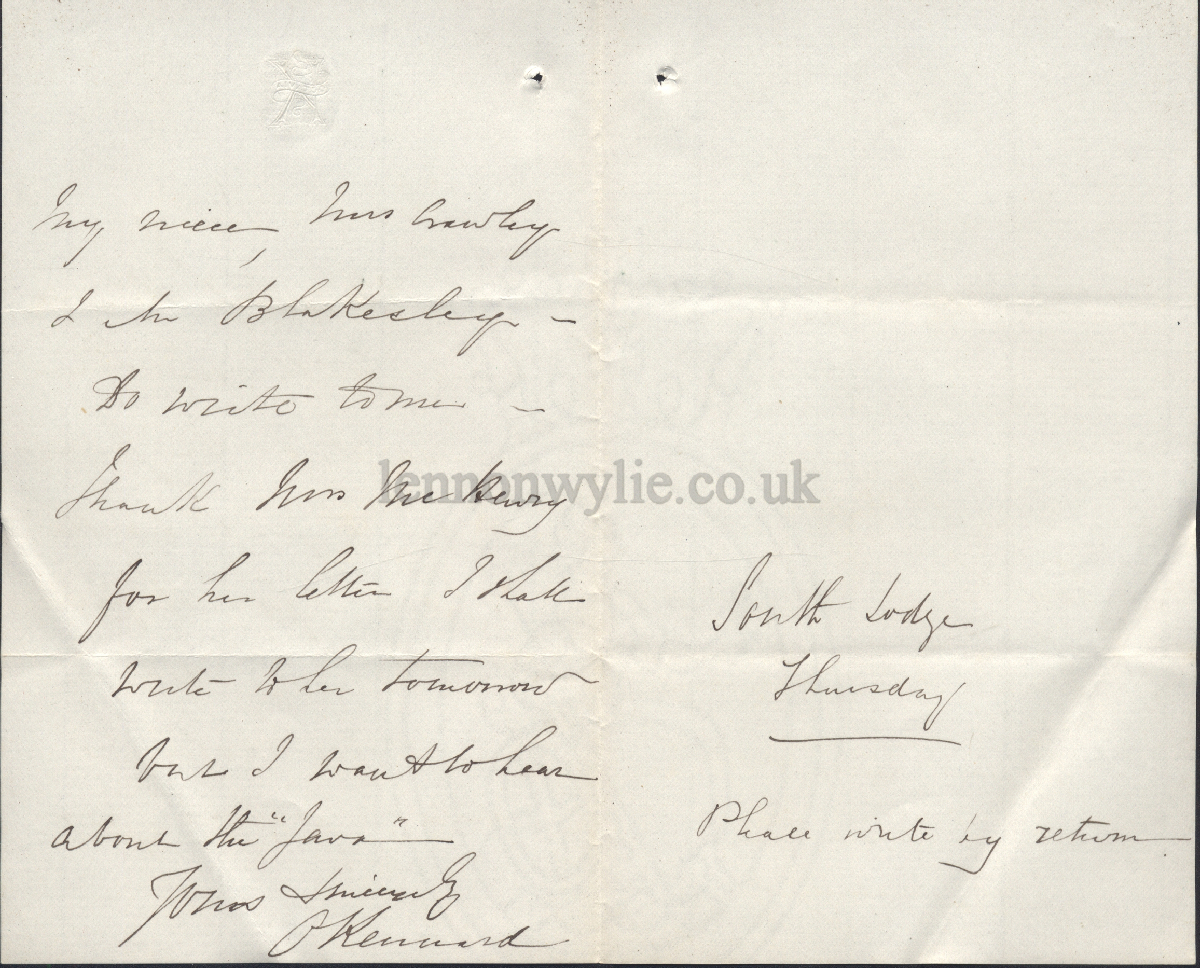 My niece, Mrs Crawley
& Mr Blakesley –
Do write to me –
Thank Mrs McHenry
for her letter I shall
write to her tomorrow
but I want to hear
about the "Java"
Yours sincerely
Kennard
South Lodge
Thursday
Please write by return
lennonwylie.co.uk